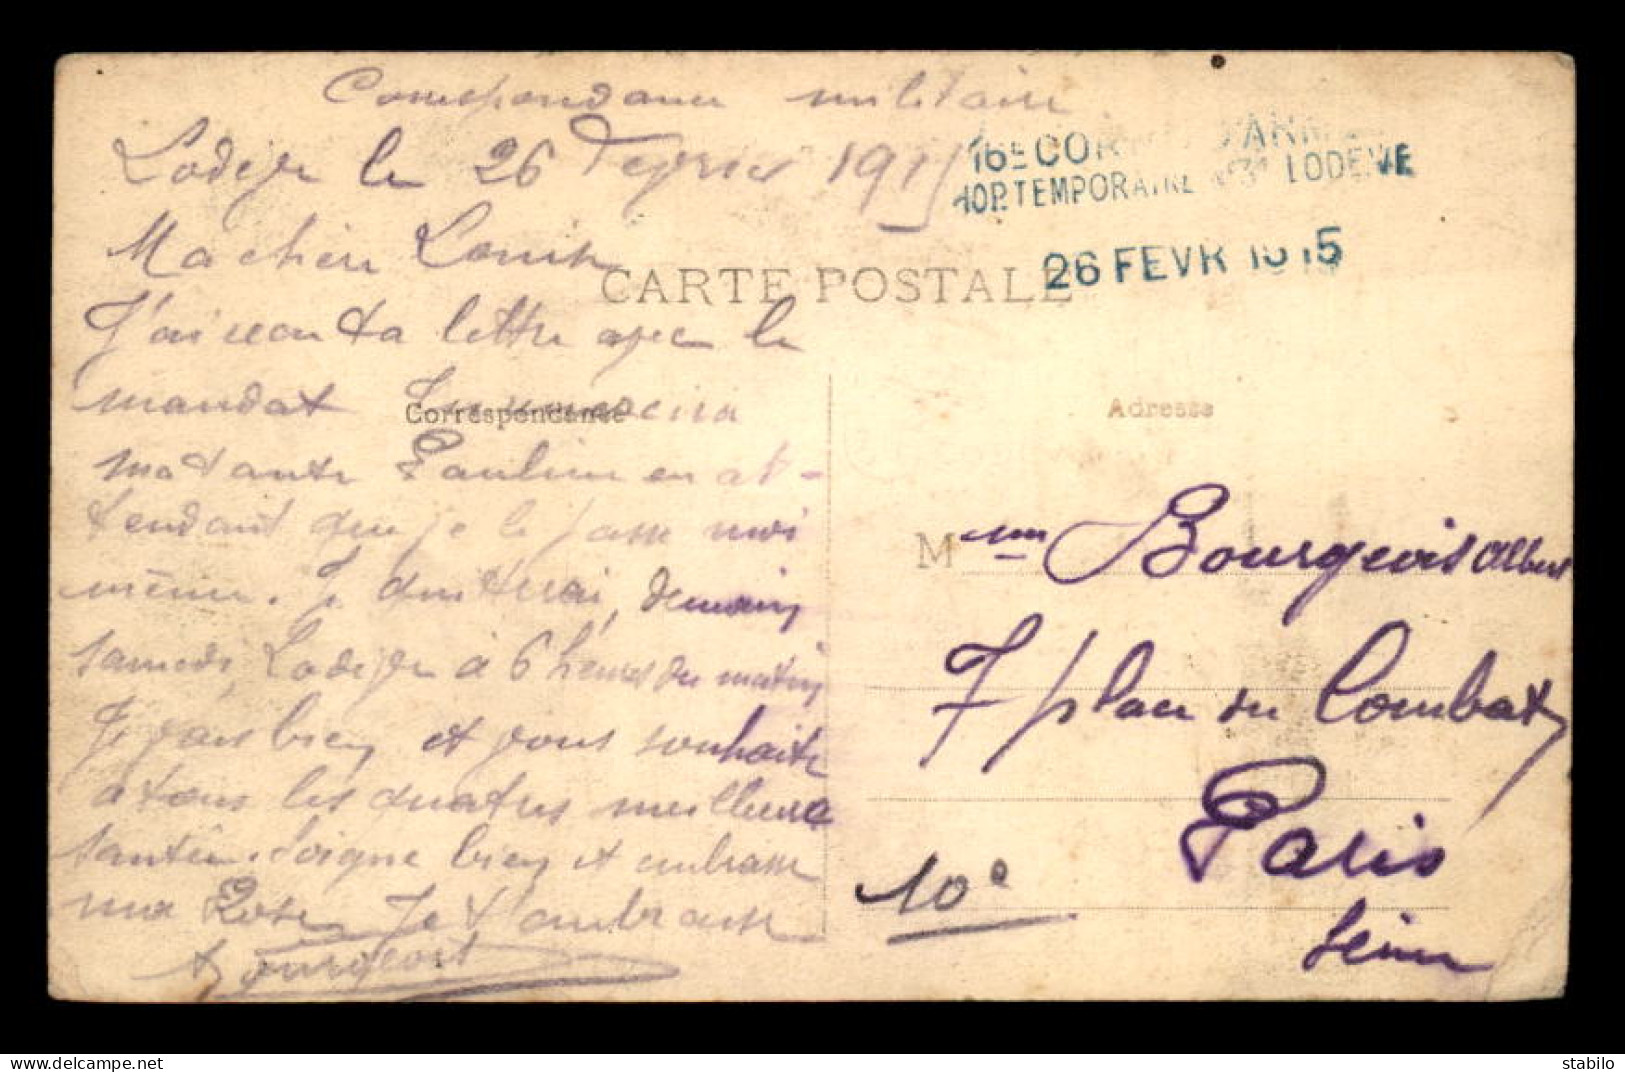 Correspondance militaire
Lodève le 26 Fevrier 1915
Ma chère Louise
J'ai recu ta lettre avec le
mandat Tu
ma tante Pauline en at-
tendant que je le fasse moi
même. Je quitterai, demain
samedi, Lodève à 6 heures du matin
Je vais bien et vous souhaite
a tous les quatres meilleure
santée. Soigne bien et embrasse
ma Rose. Je t'embrasse
Bourgeois
16E COR ARM
HOP. TEMPORAIRE LODEVE
26 FEVR 1915
CARTE POSTALE
Correspondance
Adresse
Mme Bourgeois Albert
7 place du Combat
Paris
10e
Seine
stabilo
https://www.delcampe.net